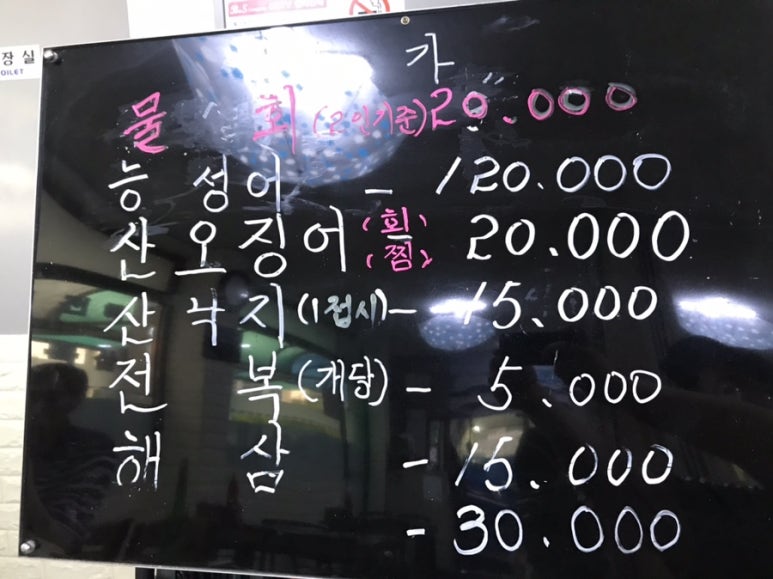 장실
OILET
가
물 회 (2인기준) 20.000
능성어 - 120.000
산오징어 (회) (찜) 20.000
산낙지 (1접시) - 15.000
전 복 (개당) - 5.000
해 삼 - 15.000
- 30.000